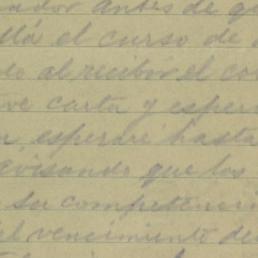 ador antes de q
llá el curso de
lo al recibir el co
ve carta y esper
esperaré hasta
avisando que los
su competenci
el vencimiento de